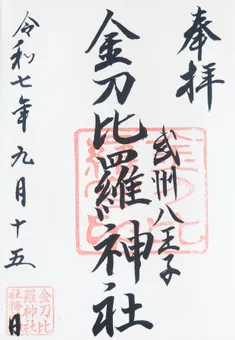 奉拝
武州八王子
金刀比羅神社
令和七年九月十五日
金刀比
羅神社
社務所